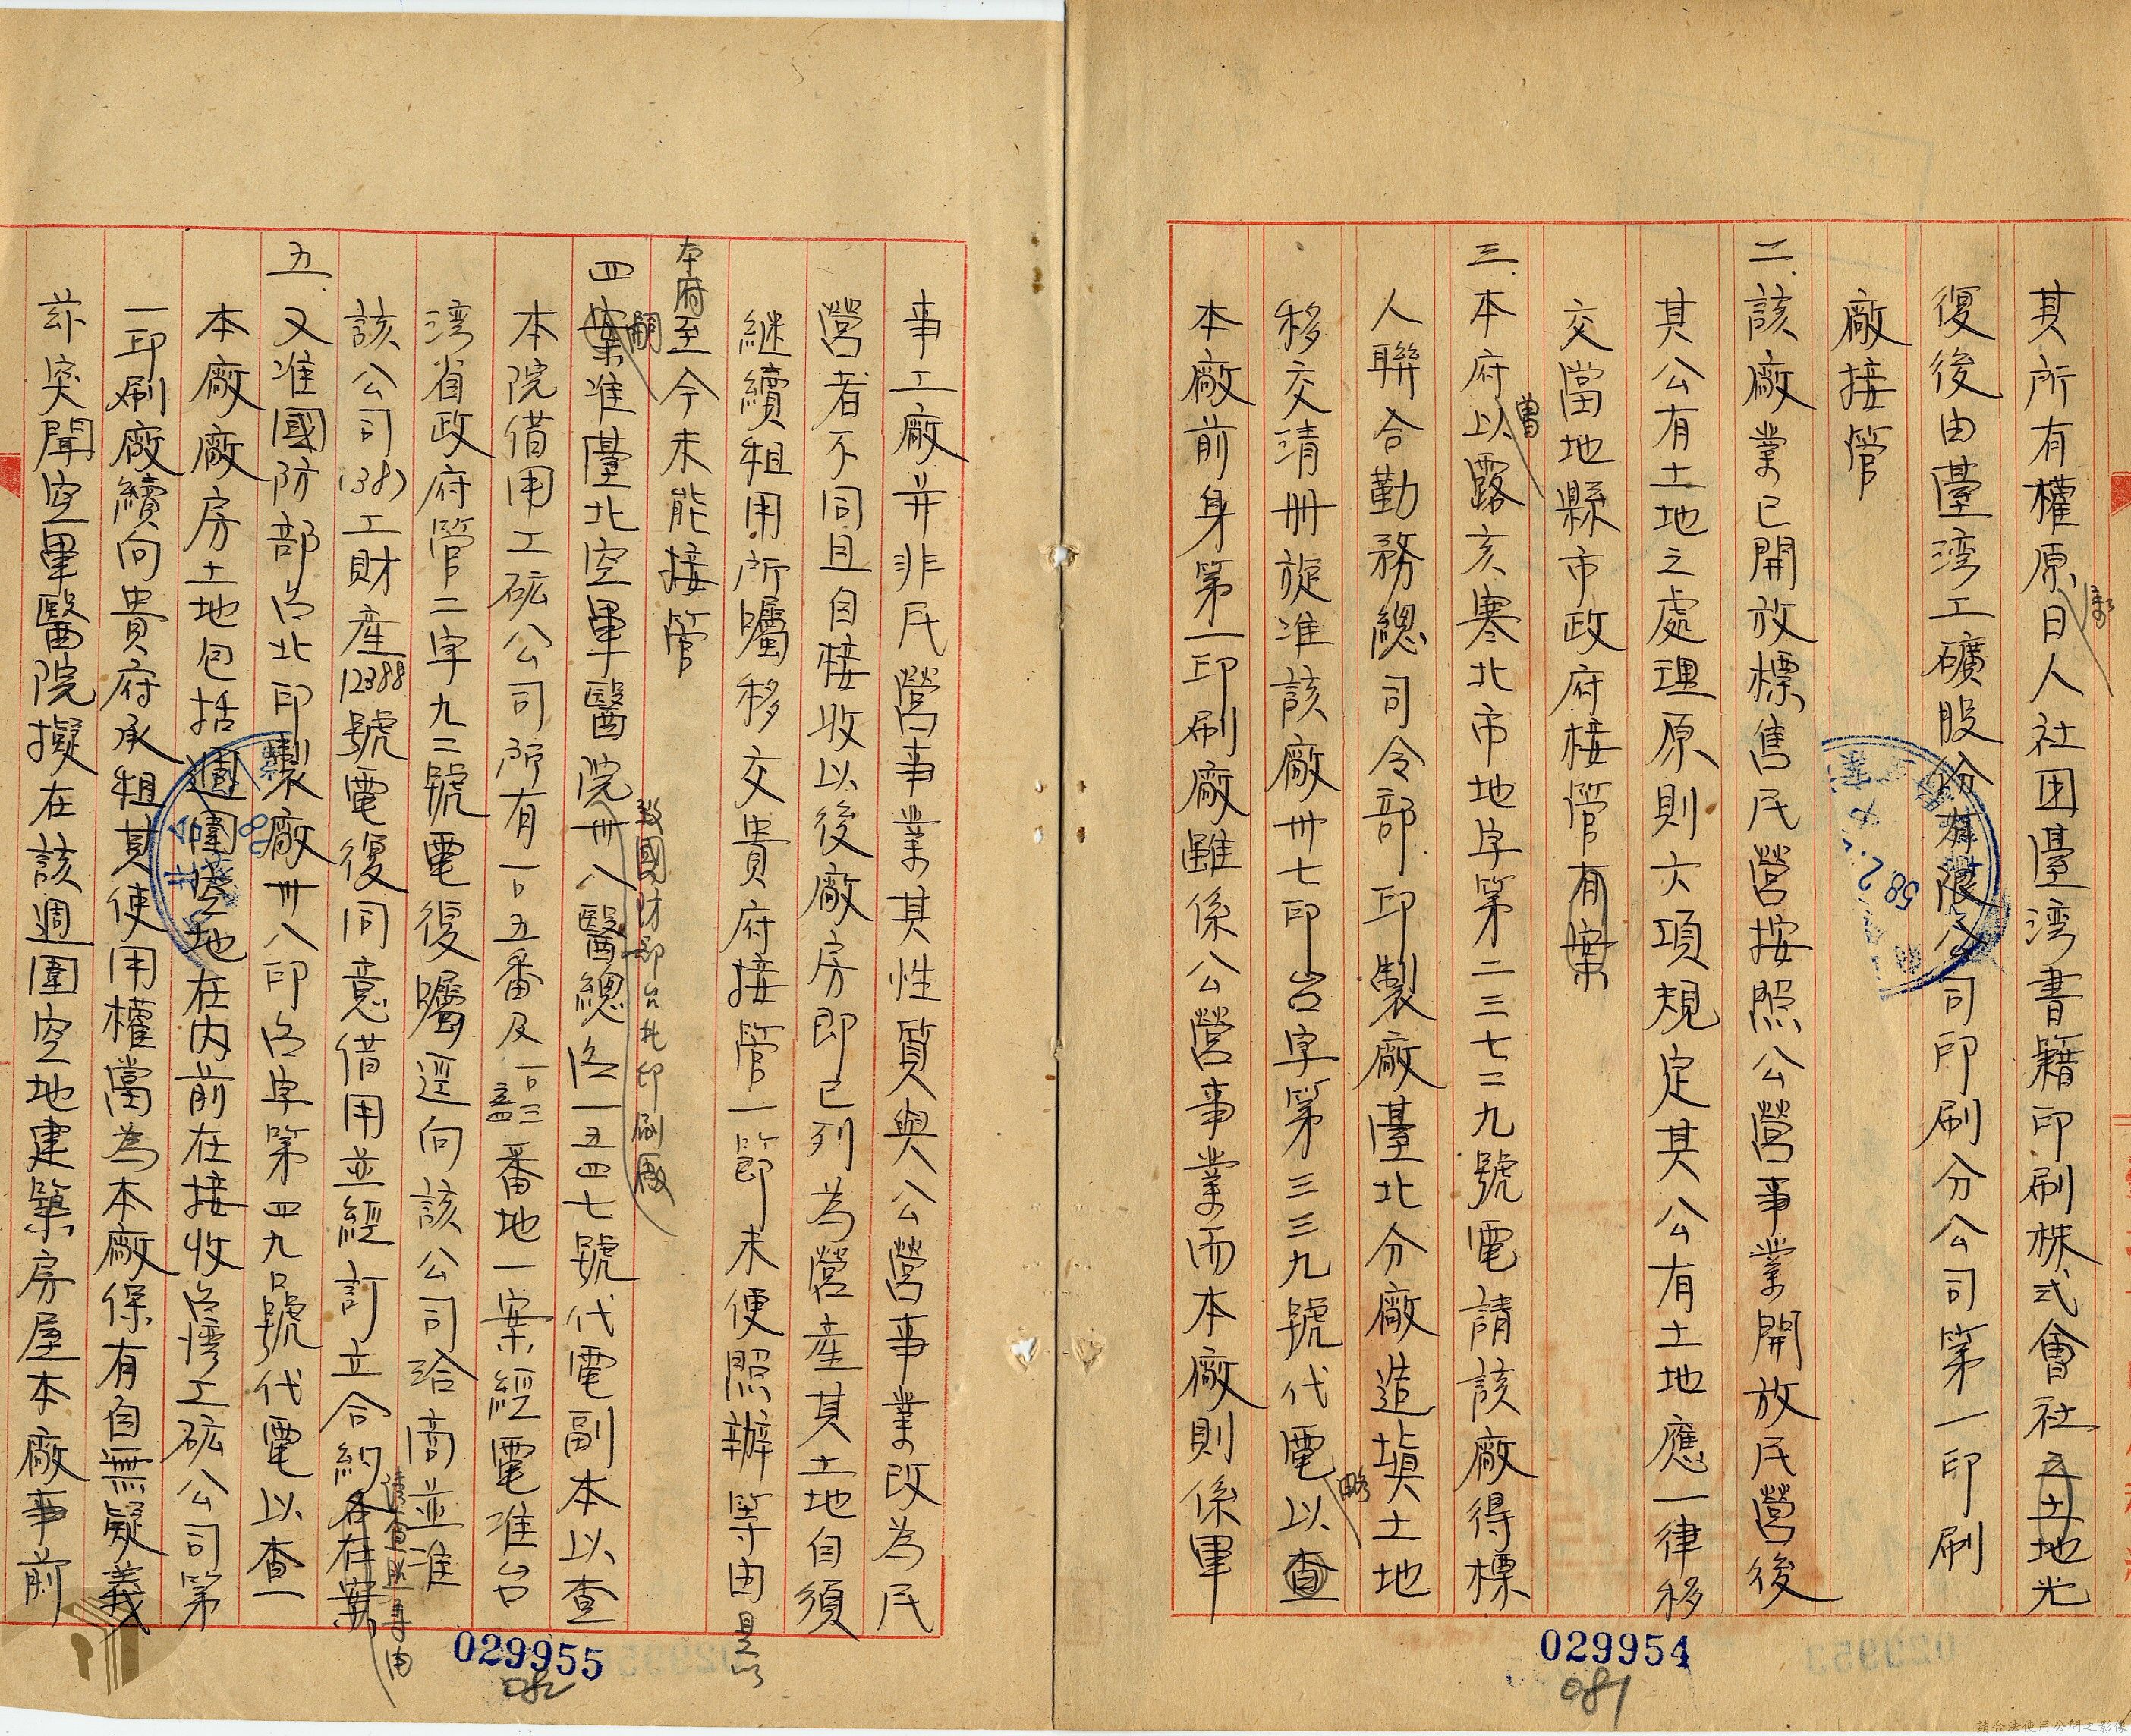 其所有權原日人社團臺湾書籍印刷株式會社土地光
復後由臺湾工礦股份有限公司印刷分公司第一印刷
廠接管
二、該廠業已開放標售民營按照公營事業開放民營後
其公有土地之處理原則六項規定其公有土地應一律移
交當地縣市政府接管有案
三、本府以曾電亥寒北市地字第二三七二九號電請該廠得標
人聯合勤務總司令部印製廠臺北分廠造填土地
移交清冊旋准該廠卅七印台字第三三九號代電略以查
本廠前身第一印刷廠雖係公營事業而本廠則係軍
事工廠并非民營事業其性質與公營事業改為民
營者不同且自接收以後廠房即已列為營產其土地自須
継續租用所囑移交貴府接管一節未便照辦等由是以
本府至今未能接管
致國防部台北印刷廠
四、案嗣准臺北空軍醫院卅八醫總任一五四七號代電副本以查
本院借用工砿公司所有一〇五番及一〇三番地一案經電准台
湾省政府管二字九二號電復囑逕向該公司洽商並准
該公司(38)工財產12388號電復同意借用並經訂立合約各在案
請查照等由
五、又准國防部台北印製廠卅八印台字第四九〇號代電以查一
本廠廠房土地包括週圍空地在內前在接收台湾工砿公司第
一印刷廠續向貴府承租其使用權當為本廠保有自無疑義
茲突聞空軍醫院擬在該週圍空地建築房屋本廠事前
029955
082
029954
081
請合法使用公開之影像